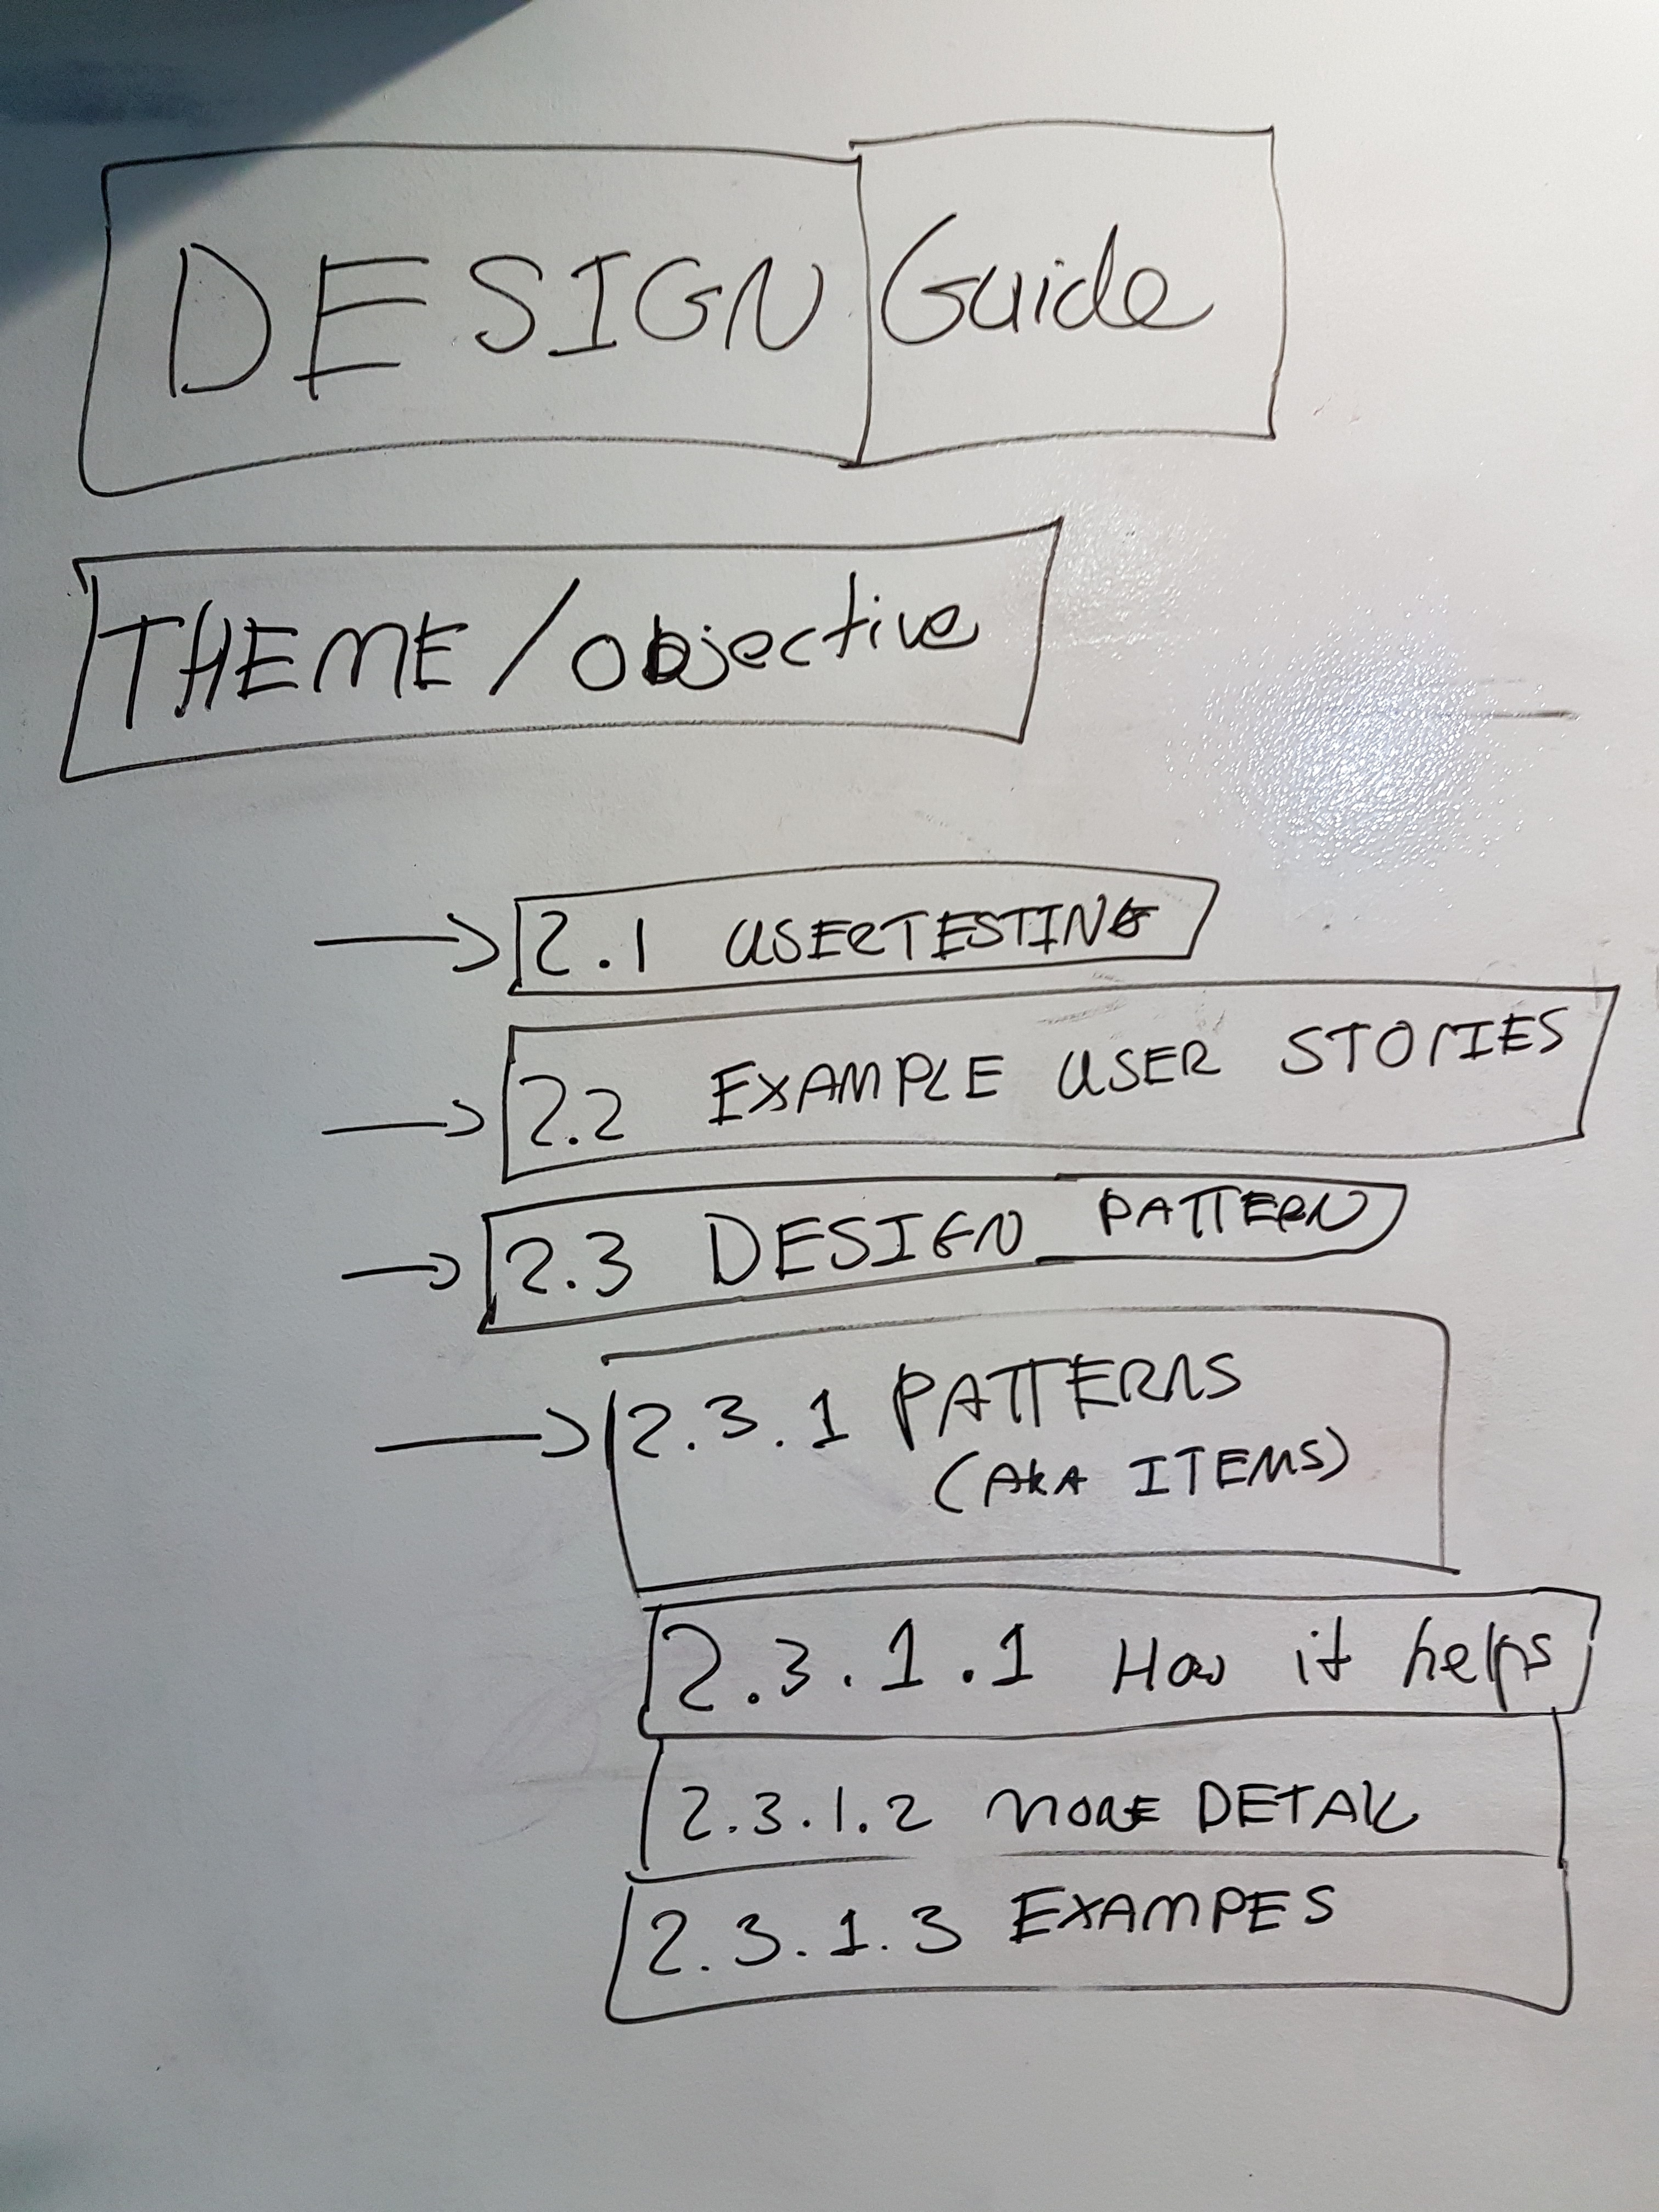 DESIGN Guide
THEME / objective
2.1 USERTESTING
2.2 EXAMPLE USER STORIES
2.3 DESIGN PATTERN
2.3.1 PATTERNS
(AKA ITEMS)
2.3.1.1 How it helps
2.3.1.2 MORE DETAIL
2.3.1.3 EXAMPES